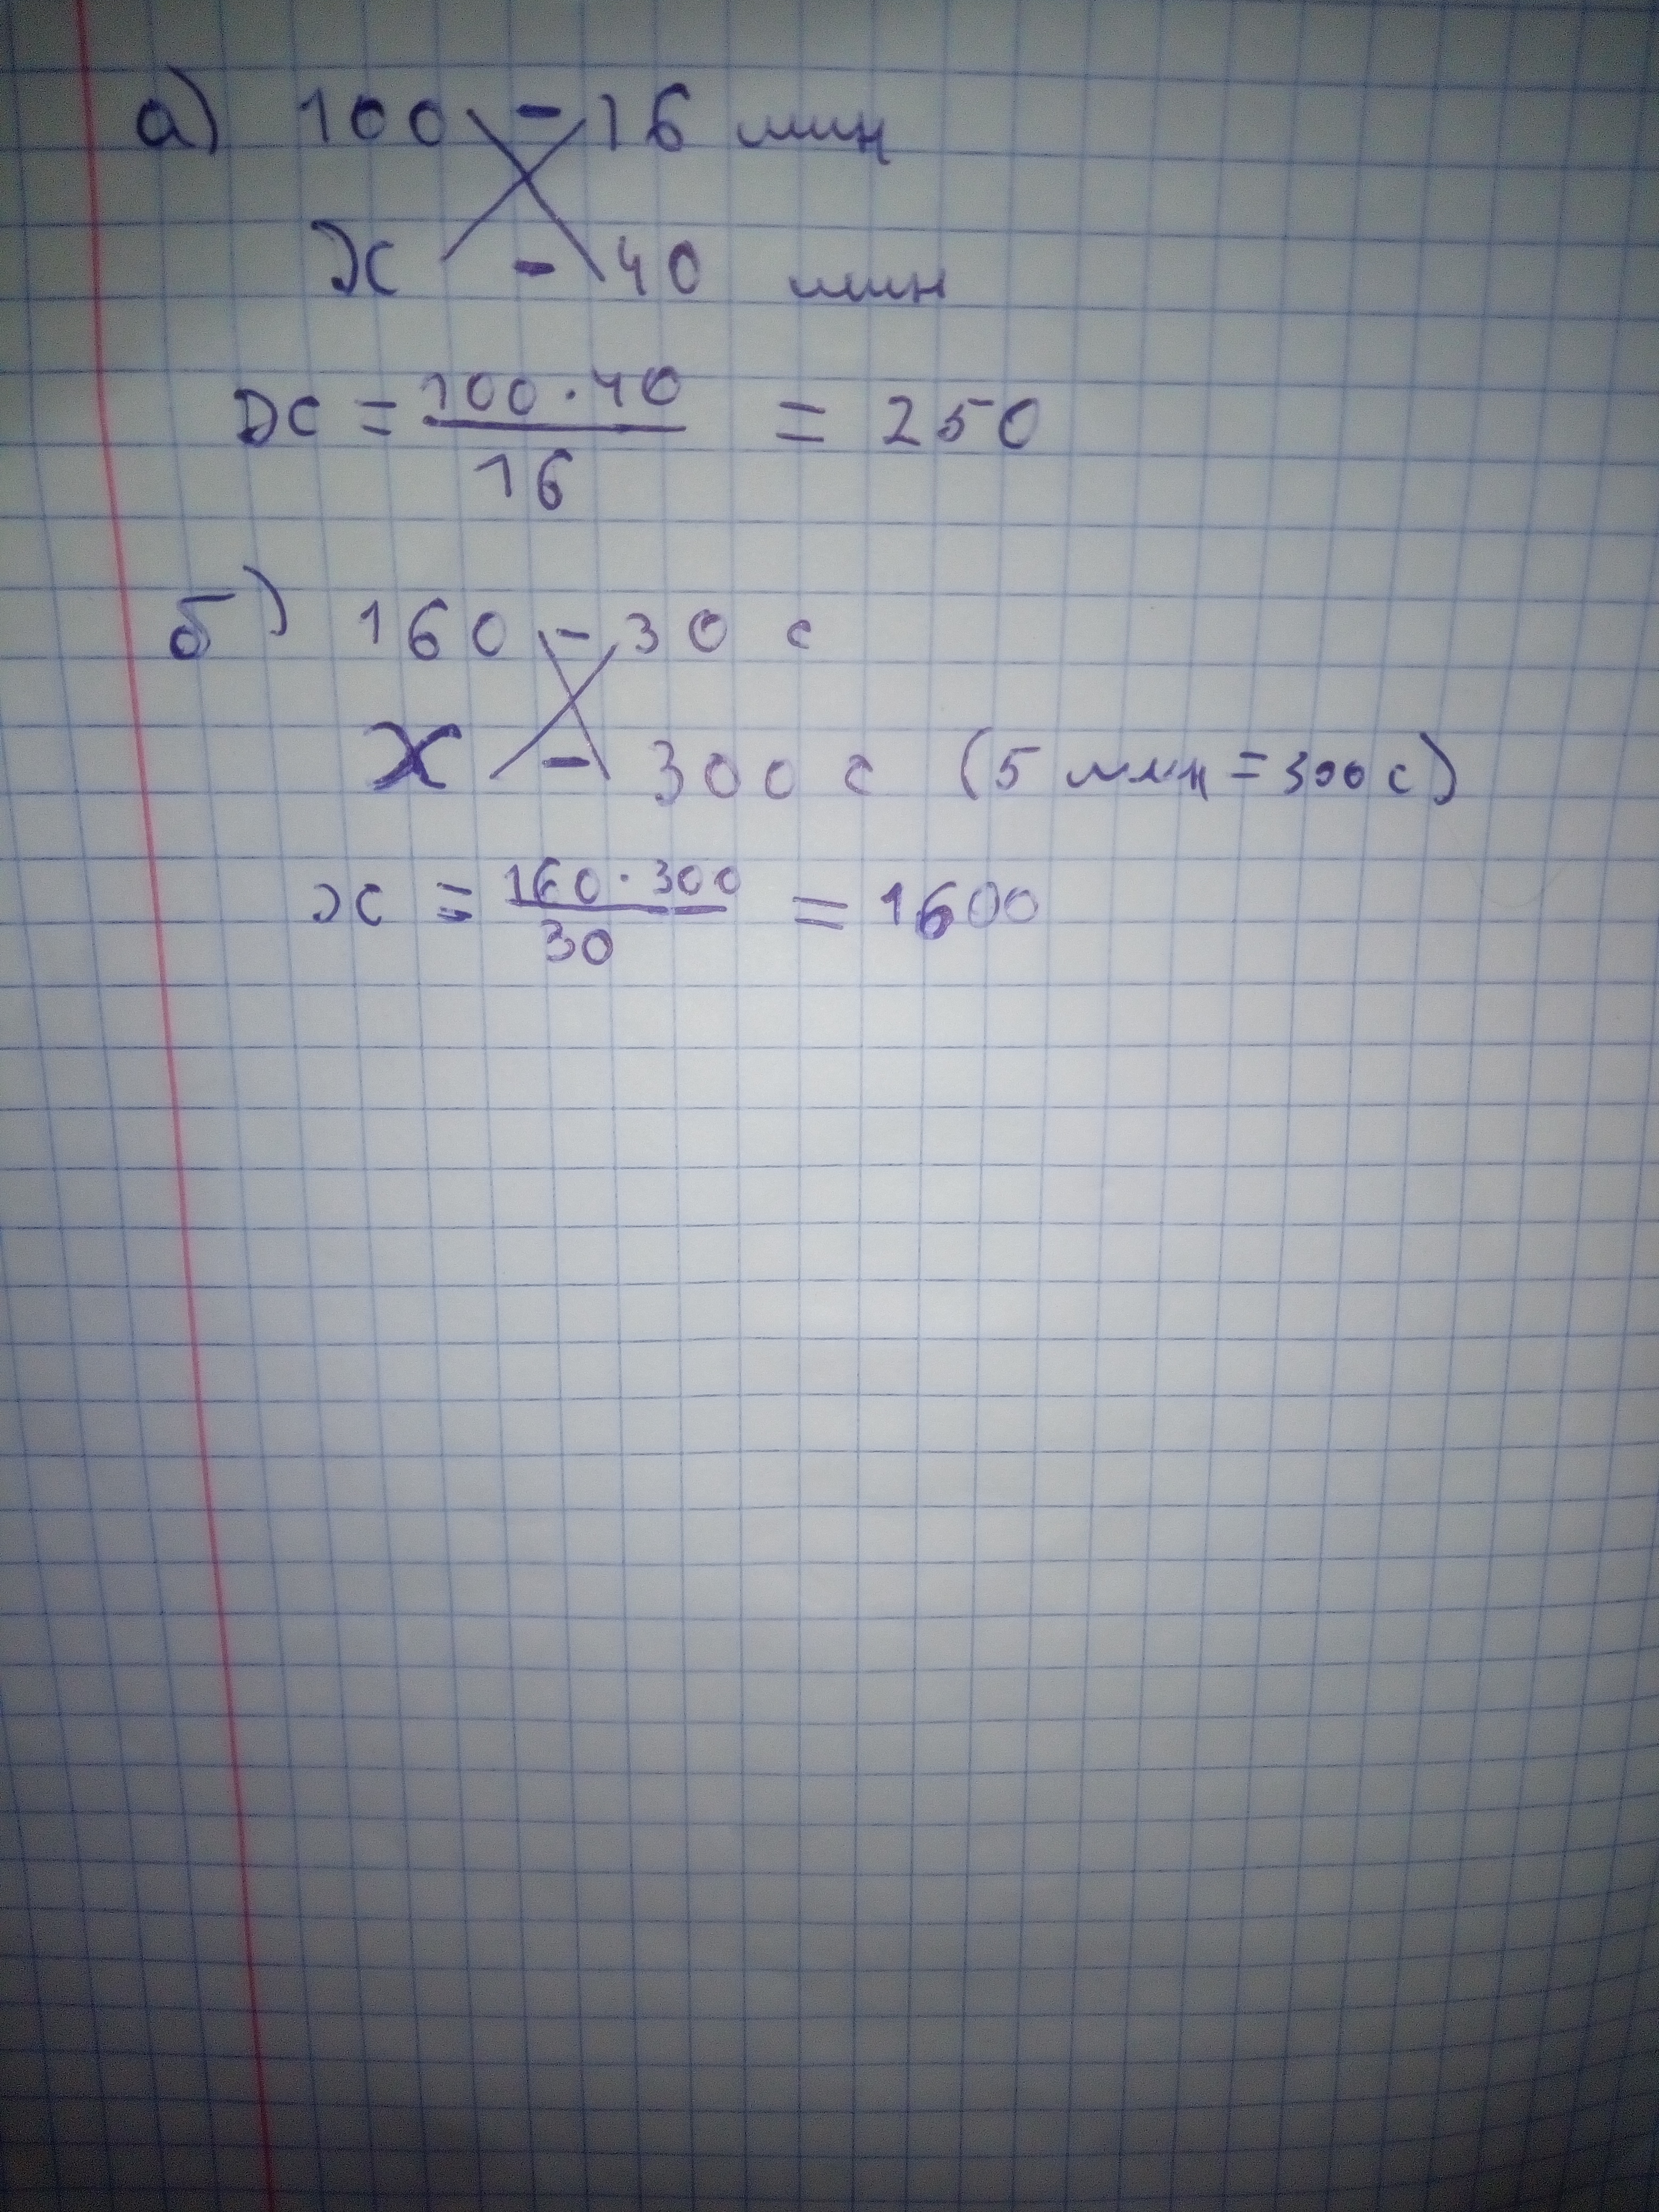 а) 100 - 16 мин
х - 40 мин
х = 100 · 40 / 16 = 250
б) 160 - 30 с
х - 300 с (5 мин = 300 с)
х = 160 · 300 / 30 = 1600